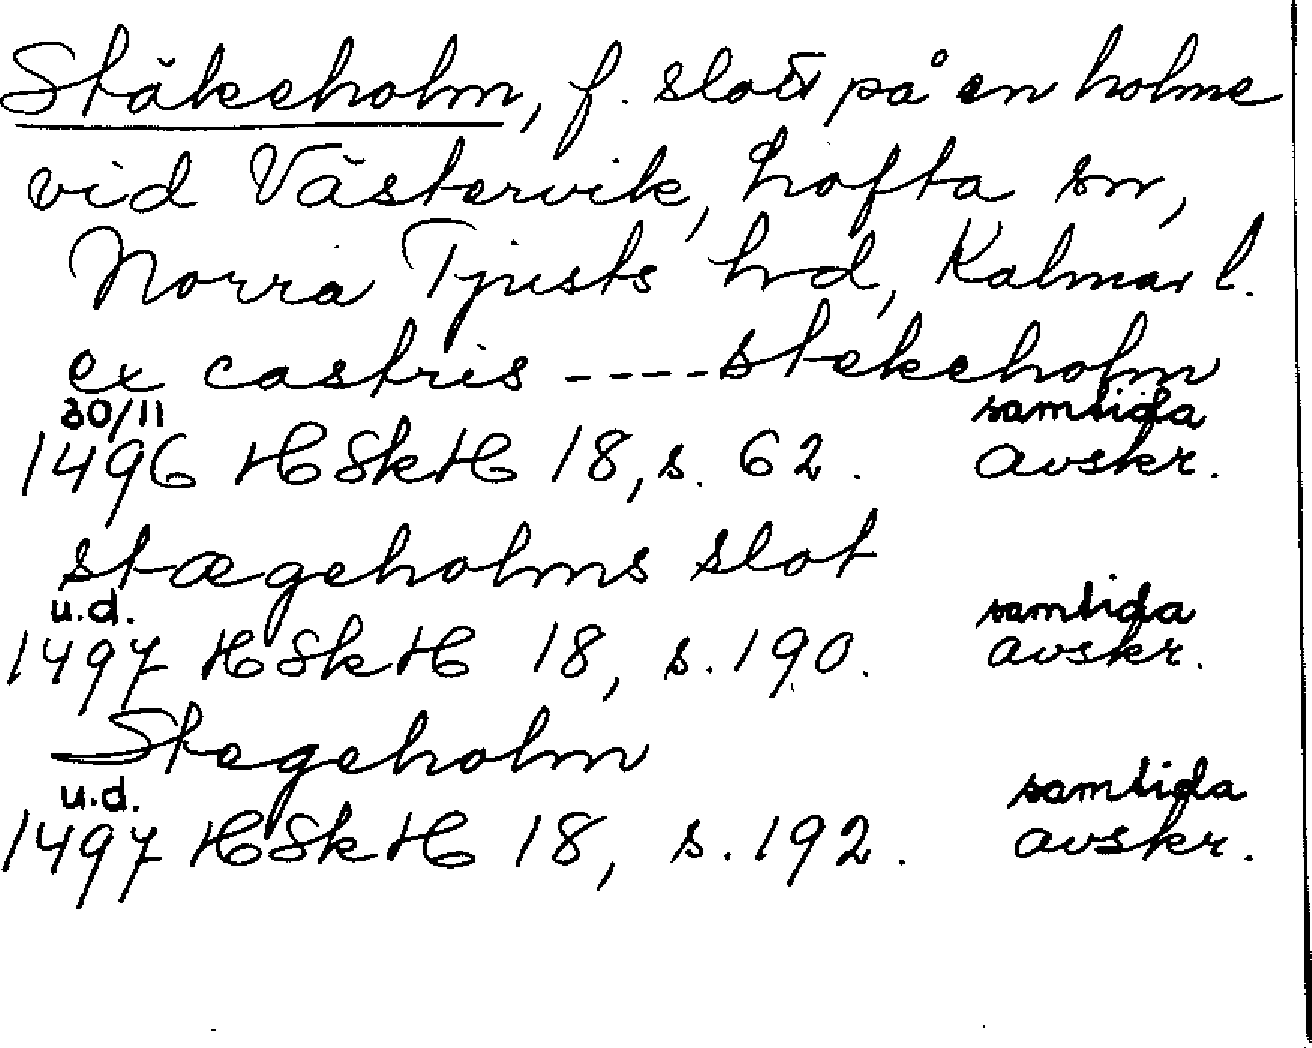 Stäkeholm, f. slott på en holme
vid Västervik, Lofta sn,
Norra Tjusts hd, Kalmar l.
ex castris ---- stekeholm
30/11 samtida
1496 HSkH 18, s. 62. avskr.
stægeholms slot
u.d. samtida
1497 HSkH 18, s. 190. avskr.
Stegeholm
u.d. samtida
1497 HSkH 18, s. 192. avskr.